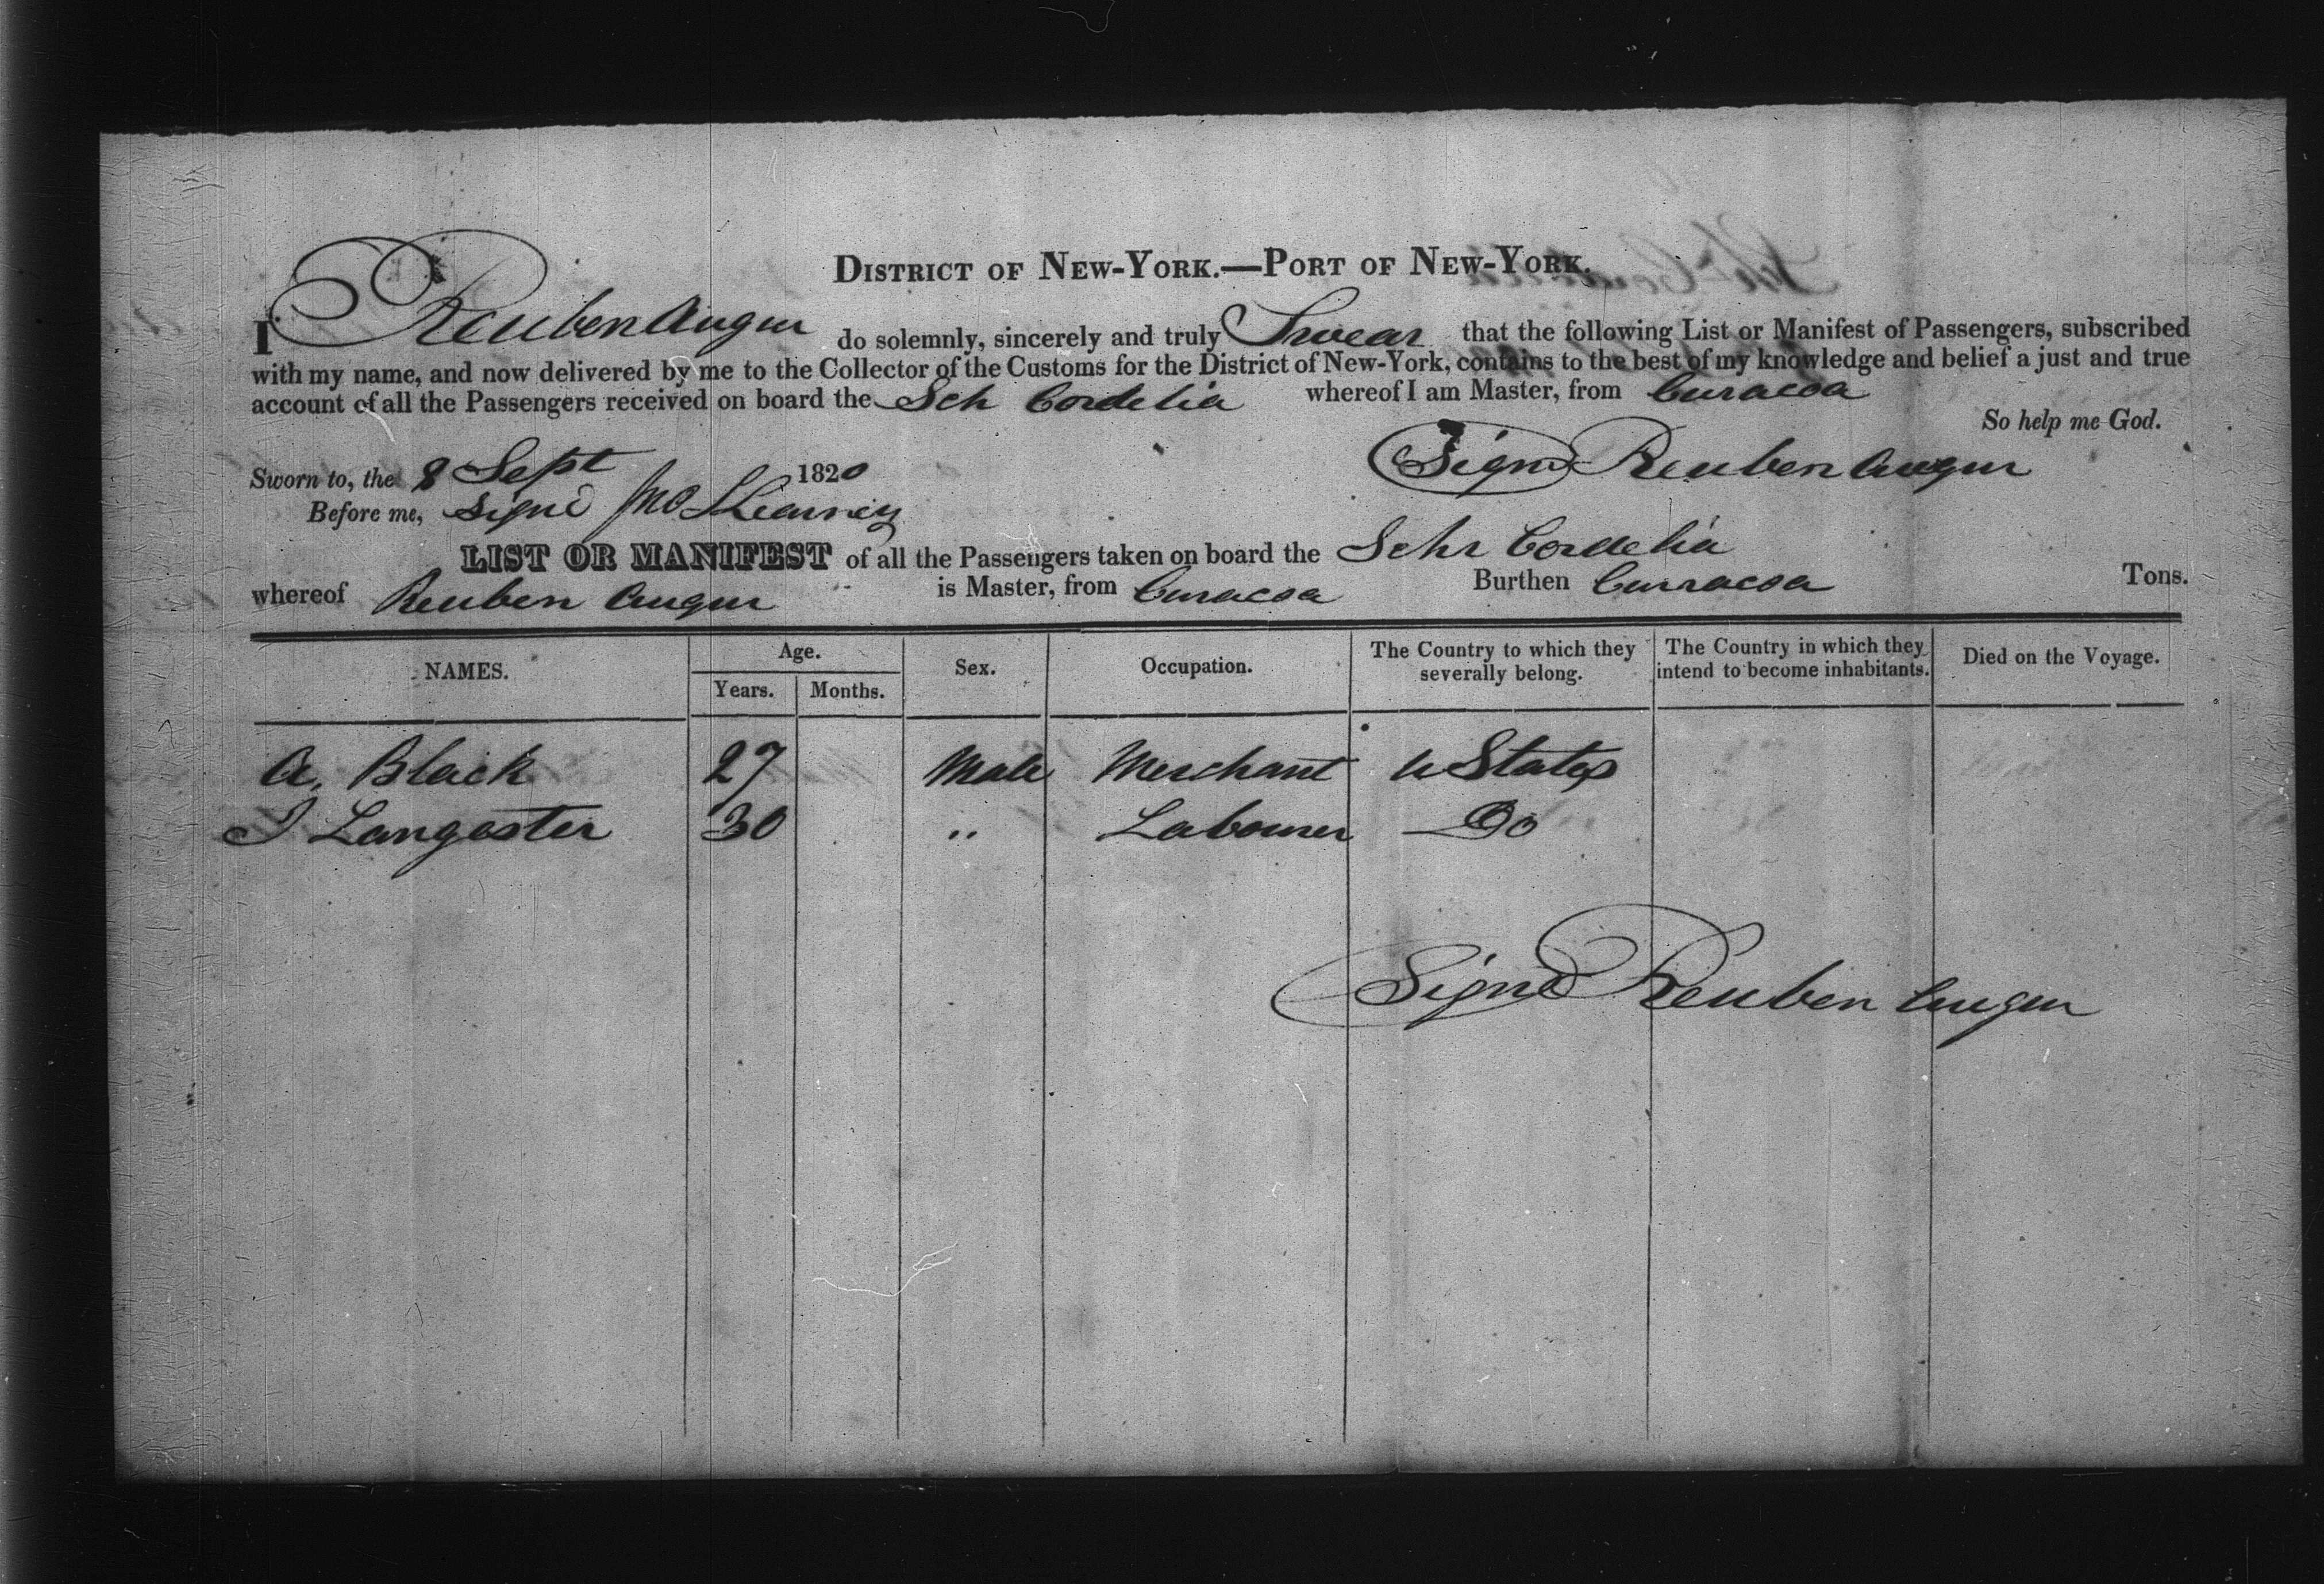 DISTRICT OF NEW-YORK.—PORT OF NEW-YORK.
I Reuben Augur do solemnly, sincerely and truly Swear that the following List or Manifest of Passengers, subscribed
with my name, and now delivered by me to the Collector of the Customs for the District of New-York, contains to the best of my knowledge and belief a just and true
account of all the Passengers received on board the Sch Cordelia whereof I am Master, from Curacoa
So help me God.
Sworn to, the 8 Sept 1820 Signd Reuben Augur
Before me, Signd Jno
LIST OR MANIFEST of all the Passengers taken on board the Schr Cordelia
whereof Reuben Augur is Master, from Curacoa Burthen Curracoa Tons.
NAMES. Age. Years. Months. Sex. Occupation. The Country to which they severally belong. The Country in which they intend to become inhabitants. Died on the Voyage.
A. Black 27 Male Merchant U States
J Langaster 30 " Labourer Do
Signd Reuben Augur